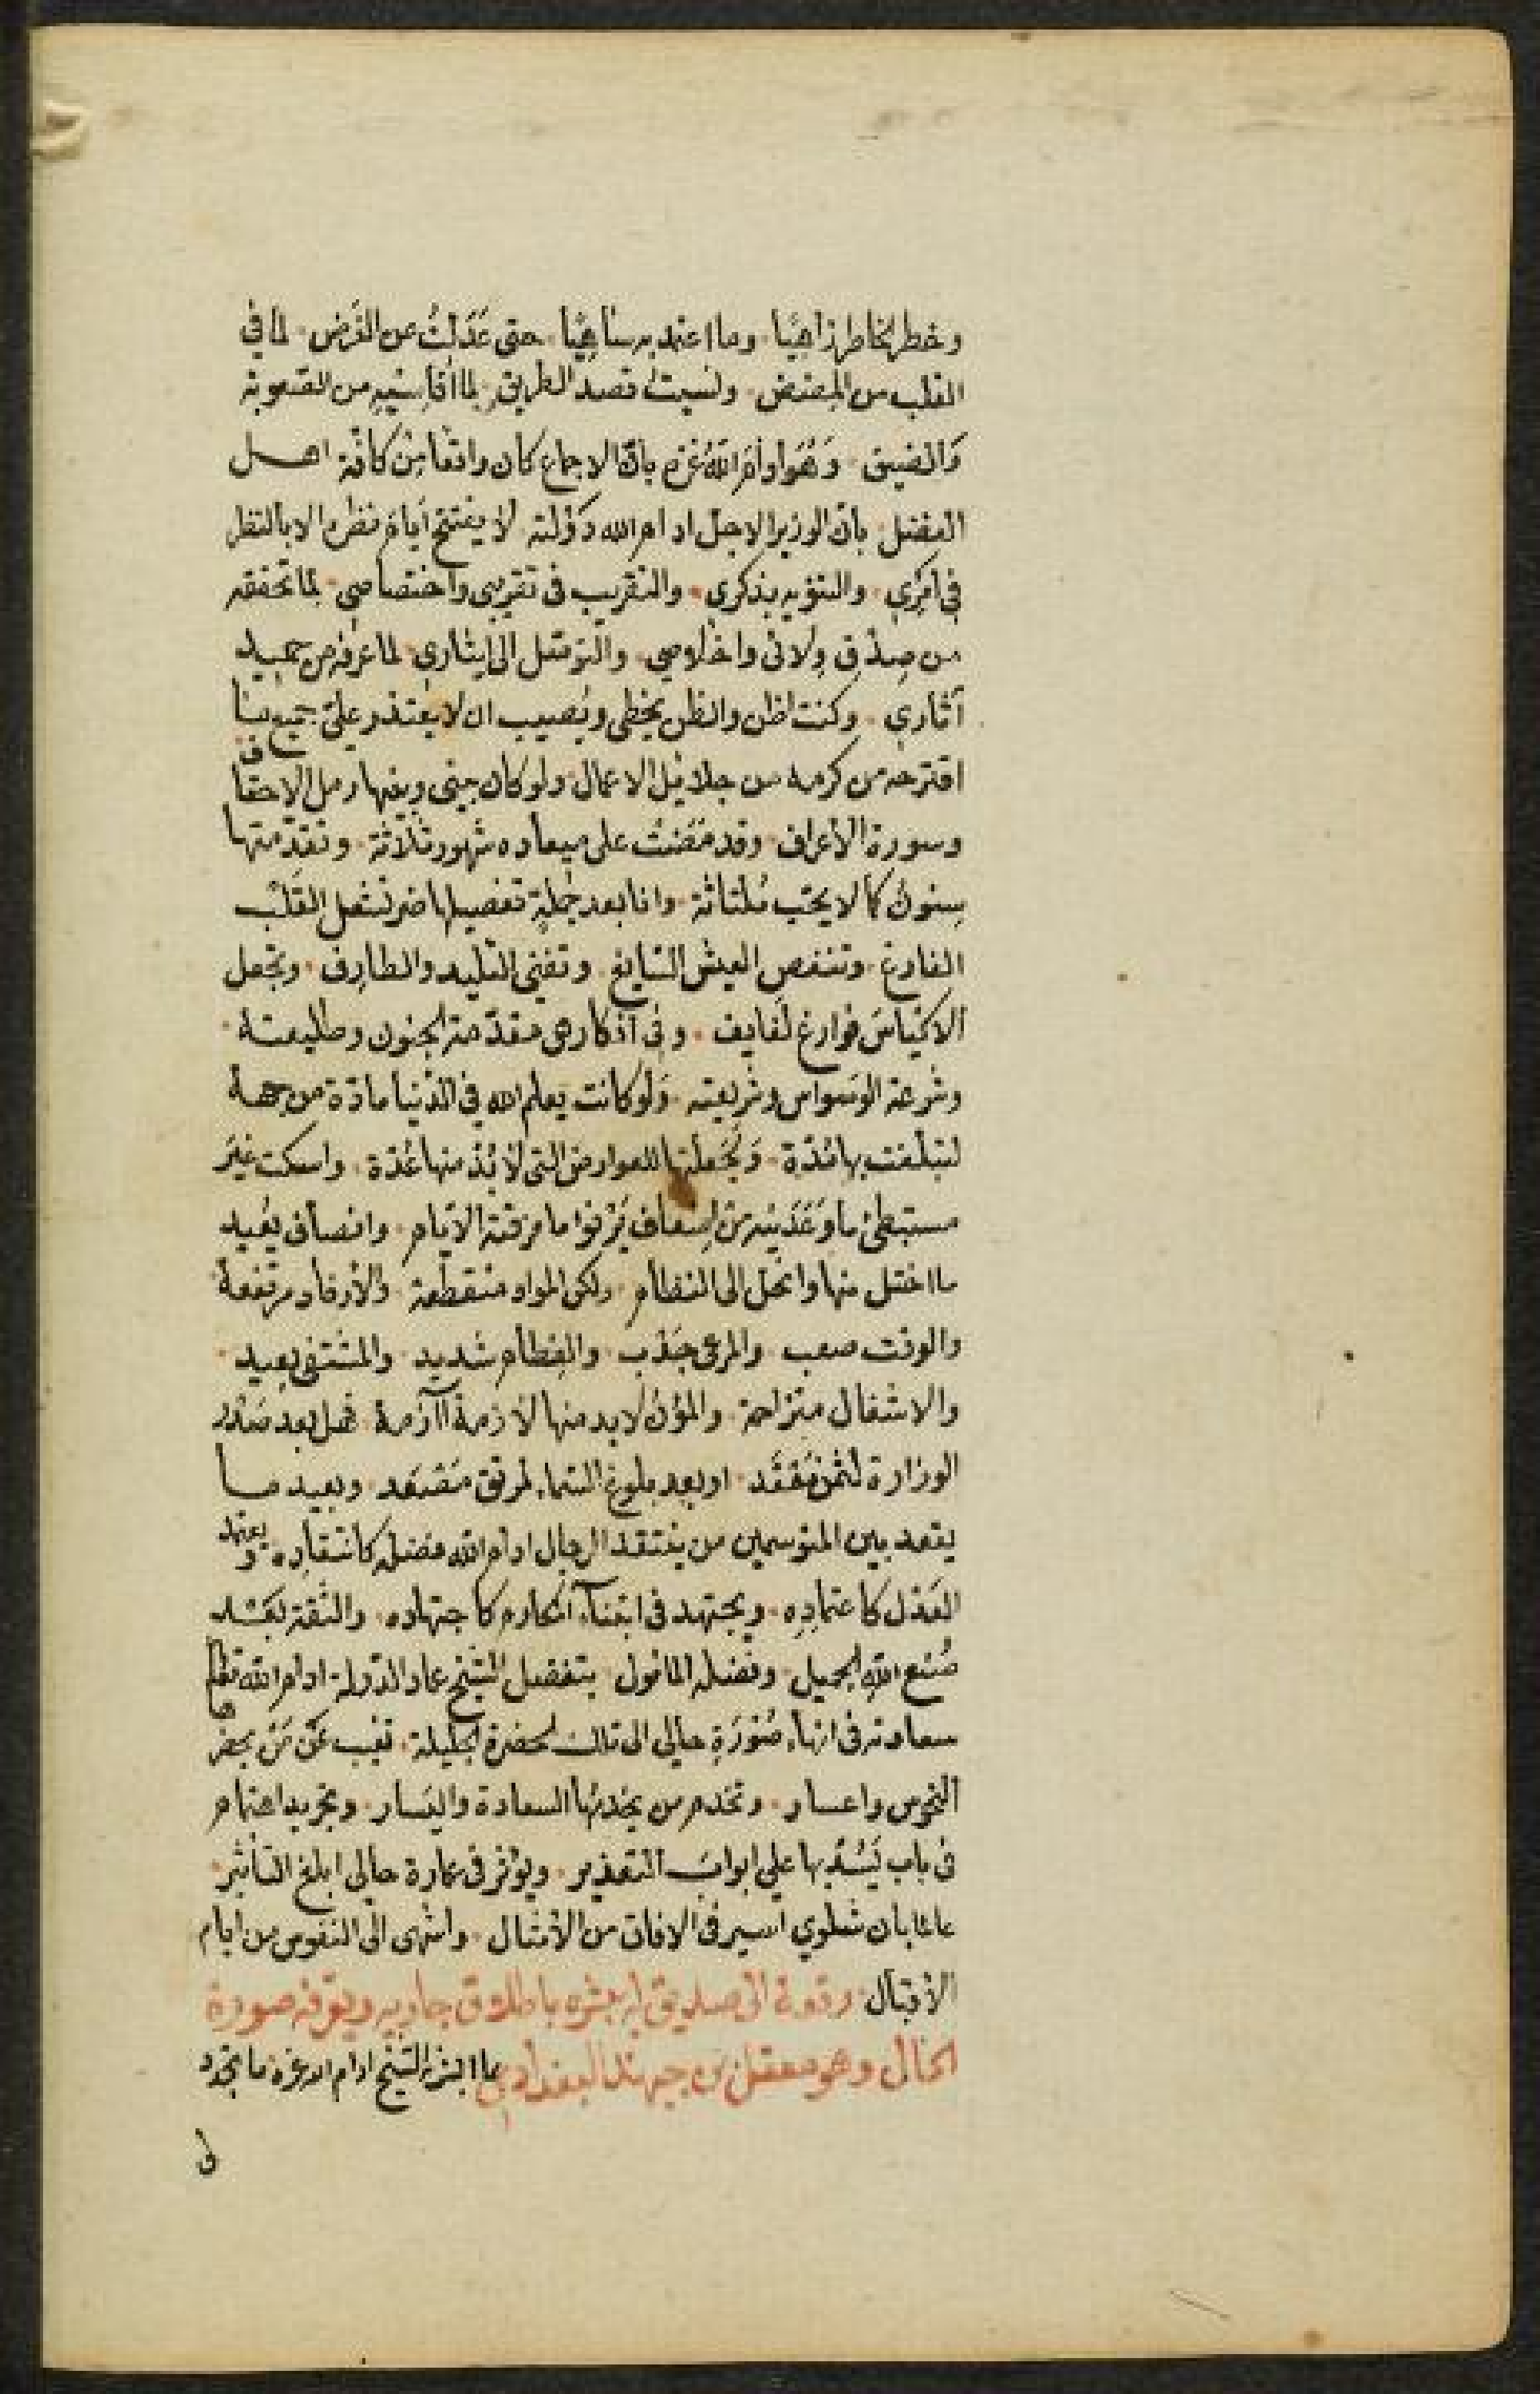 وخطر الخاطر ذاهبًا · وما اعتد به سناهيًا · حتى عَدَلتُ عن الغَرض · لما في
القلب من المضض · ونسيت قصد الطريق · لما اقاسيه من الصعوبة
وَالضيق · وَهُوَ ادام الله عزه بان الاجماع كان واقعا مِن كافة اهل
الفضل · بان الوزير الاجل ادام الله دَوْلته لا يفتتح ايام نظره الا بالنظر
في امري · والتنويه بذكري · والتقريب في تقريبي واختصاصي · لما تحققه
من صِدْق وِلائى واخلاصي · والتوصل الى ايثاري · لما عرفه من حميد
آثاري · وكنت اظن والظن يخطى ويُصيب ان لا يتعذر علىّ جميع ما
اقترحه من كرمه من جلائل الاعمال · ولو كان بينى وبينها رمل الاحقاف
وسورة الأعراف · وقد مَضَت على ميعاده شهور ثلاثة · وتقدّمتها
سِنونٌ كما لا يحتب مُلتاثة · وانا بعد جُملةٍ تفصيلها ضر تشغل القَلْب
الفارغ · وتنغص العيش السّايغ · وتفنى التليد والطارِف · وتجعل
الاكياسَ فوارغ لفايف · وفى اذكارهى مقدّمة الجنون وطليعته ·
وشرعة الوَسواس وشريعته · وَلو كانت يعلم الله في الدّنيا مادّة من جهة
لتبلّغت بها مُدّة · وَلجَعلتها للعوارض التى لا بُدّ منها عُدّة · وامسكت غيْرَ
مستبطئ ما وَعَدَنيه مِنْ اِسعاف يَرْفوا ما مزقته الايّام · وانصاف يُعيد
ما اختل منها وانحل الى النظام · ولكن المواد منقطعة · والأرفاد مرتفعة
والوقت صعب · والمرعى جَدْب · والفِطام شديد · والمشتفى بعيد ·
والاشغال متزاحمة · والمؤن لا بد منها لأزمة اآزمة · فهل بعد صَدْر
الوزارة لثمن مَقْعَد · او بعد بلوغ السّماء لمرتق مَصْعَد · وبعيد ما
يقعد بين المتوسمين من ينتقد الرجال ادام الله فضله كانتقادِه · ويعتمد
العَدْل كاعتمادِه · ويجتهد فى ابتناء المكارم كاجتهاده · والثقة بَعْد
صُنع الله الجميل · وفضله المامول · بتفضل الشيخ عماد الدّولة ادام الله تعالى
سعادته فى انهاء صُوْرَةِ حالى الى تلك الحضرة الجليلة · تغيب عَنْ مَنْ يحضرها
النحوس واعسار · وتخدم من يخدمُها السعادة واليَسار · وتجريد اهتمام
فى باب يَسُدّ بها على ابواب التعذير · ويؤثر فى عمارة حالى ابلغ التأثير ·
عالما بان شكوي اسير فى الافاق من الأمثال · واشهى الى النفوس من ايام
الأقبال · رقعة الى صديق له يبشره باطلاق جاريه ويعرفه صورة
الحال وهو معتقل من جهة ... البغدادى ما اابشر الشيخ ادام الله عزه ما تجدد
لى